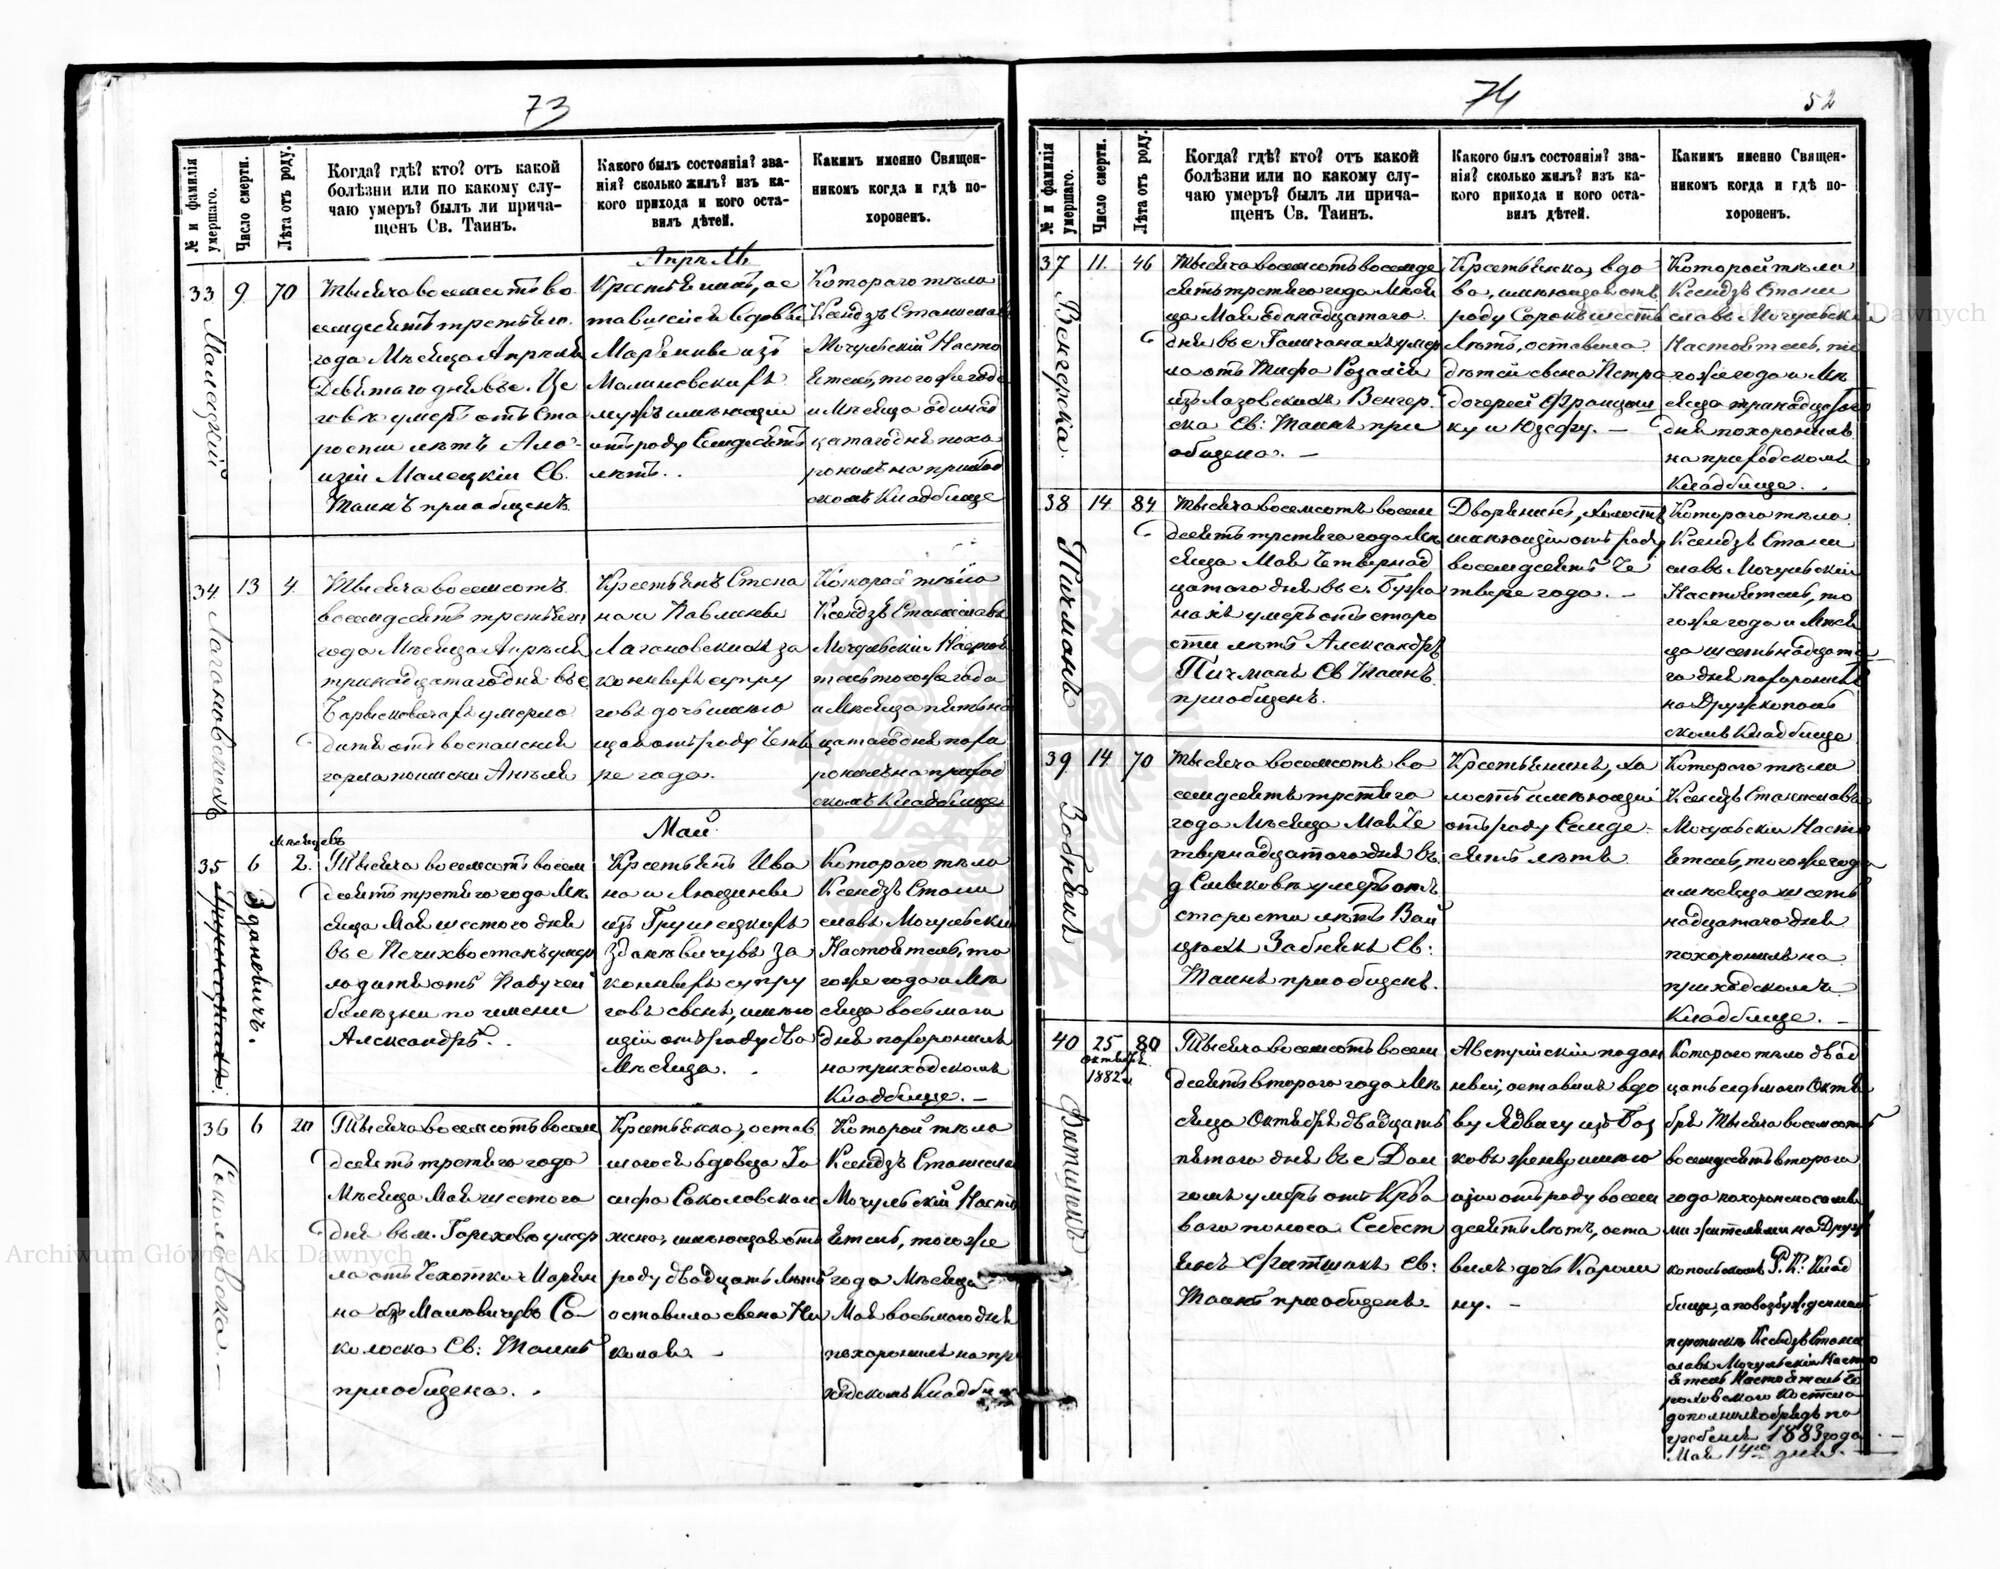 73
№ и фамилія умершаго.
Число смерти.
Лѣта отъ роду.
Когда? гдѣ? кто? отъ какой
болѣзни или по какому слу-
чаю умеръ? былъ ли прича-
щенъ Св. Таинъ.
Какого былъ состоянія? зва-
нія? сколько жилъ? изъ ка-
кого прихода и кого оста-
вилъ дѣтей.
Какимъ именно Священ-
никомъ когда и гдѣ по-
хороненъ.
Апрѣль
33
Малецкій
9
70
Тысяча восемсотъ во
семдесятъ третьяго
года Мѣсяца Апрѣля
Девятаго дня въ с.
умеръ отъ ста
рости лѣтъ Ало-
изій Малецкій Св.
Таинъ приобщенъ
Крестьянинъ, ос
тавившій вдову
Марьянну изъ
Малиновскихъ
мужъ имѣющій
отъ роду Семдесятъ
лѣтъ.
Котораго тѣло
Ксендзъ Станиславъ
Мочульскій Насто
ятель, тогоже года
и Мѣсяца одинад
цатаго дня похо
ронилъ на приход
скомъ Кладбище
34
Лагановскихъ
13
4
Тысяча восемсотъ
восемдесятъ третьяго
года Мѣсяца Апрѣля
тринадцатаго дня въ с
умерло
дитя отъ воспаленія
горла поимени Анѣля
Крестьянъ Степа
на и Павлины
Лагановскихъ за
конныхъ супру
говъ дочь имѣю
щая отъ роду Четы
ре года.
Которой тѣло
Ксендзъ Станиславъ
Мочульскій Настоя
тель тогоже года
и Мѣсяца пятьна
цатаго дня похо
ронилъ на приход
скомъ Кладбище
Май
35
Зданевичъ.
6
Мѣсяцевъ
2.
Тысяча восемсотъ восем
десятъ третьяго года Мѣ
сяца Мая шестого дня
въ с Печихвостахъ умер
ло дитя отъ Падучей
болѣзни по имени
Александръ.
Крестьянъ Ива
на и Люцины
изъ Грушецкихъ
Зданѣвичувъ За
конныхъ супру
говъ сынъ, имѣю
щій отъ роду два
Мѣсяца.
Котораго тѣло
Ксендзъ Стани
славъ Мочульскій
Настоятель, то
гоже года и Мѣ
сяца восьмаго
дня похоронилъ
на приходскомъ
Кладбище. —
36
Соколовска. —
6
20
Тысяча восемсотъ восем
десятъ третьяго года
Мѣсяца Мая шестого
дня въ м. Гороховѣ умер
ла отъ Чехотки Марьян
на изъ Малевичувъ Со-
колоска Св: Таинъ
приобщена.
Крестьянка, остав
шагося вдовца Іо
сифа Соколовскаго
жена, имѣющая отъ
роду двадцать лѣтъ
оставила сына Ни
колая. —
Которой тѣло
Ксендзъ Станиславъ
Мочульскій Насто
ятель, тогоже
года Мѣсяца
Мая восьмого дня
похоронилъ на при
ходскомъ Кладбище
74
52
№ и фамилія умершаго.
Число смерти.
Лѣта отъ роду.
Когда? гдѣ? кто? отъ какой
болѣзни или по какому слу-
чаю умеръ? былъ ли прича-
щенъ Св. Таинъ.
Какого былъ состоянія? зва-
нія? сколько жилъ? изъ ка-
кого прихода и кого оста-
вилъ дѣтей.
Какимъ именно Священ-
никомъ когда и гдѣ по-
хороненъ.
37
Венгерска
11.
46
Тысяча восемсотъ восемде
сятъ третьяго года Мѣся
ца Мая одинадцатаго
дня въ с Галичанахъ умер
ла отъ Тифа Розалія
изъ Лазовскихъ Венгер
ска Св: Таинъ при
общена. —
Крестьянка, вдо
ва, имѣющая отъ
роду Сорокъ шесть
лѣтъ, оставила
дѣтей сына Петра
дочерей Францыш
ку и Юзефу. —
Которой тѣло
Ксендзъ Стани
славъ Мочульскій
Настоятель, то
гоже года и Мѣ
сяца тринадцатого
дня похоронилъ
на приходскомъ
Кладбище.
38
Пичманъ
14
84
Тысяча восемсотъ восем
десятъ третьяго года Мѣ
сяца Мая Четвернад
цатаго дня въ с. Бужа
нахъ умеръ отъ старо
сти лѣтъ Александръ
Пичманъ Св Таинъ
приобщенъ.
Дворянинъ, холостъ
имѣющій отъ роду
восемдесятъ Че
тыре года. —
Котораго тѣло
Ксендзъ Стани
славъ Мочульскій
Настоятель, то
гоже года и Мѣся
ца шестьнадцата
го дня похоронилъ
на Дружкополь
скомъ Кладбище
39
Зобнякъ
14
70
Тысяча восемсотъ во
семдесятъ третьяго
года Мѣсяца Мая Че
твернадцатого дня въ
д Смыковѣ умеръ отъ
старости лѣтъ Вой
цѣхъ Забнякъ Св:
Таинъ приобщенъ.
Крестьянинъ, хо
лостъ имѣющій
отъ роду Семде-
сятъ лѣтъ
Котораго тѣло
Ксендзъ Станиславъ
Мочульскій Насто
ятель, тогоже года
и мѣсяца шесть
надцатаго дня
похоронилъ на
приходскомъ
Кладбище. —
40
Фатшекъ
25
октября
1882 г.
80
Тысяча восемсотъ восем
десятъ второго года Мѣ
сяца Октября двадцать
пятого дня въ с Дол
умеръ отъ Крова
ваго поноса Себест
янъ Св:
Таинъ приобщенъ.
Австрійскій подан
ный, оставилъ вдо
ву Ядвигу изъ
имѣю
щій отъ роду восем
десятъ лѣтъ, оста
вилъ дочь Кароли
ну. —
Котораго тѣло двад
цать седьмого Октя
бря Тысяча восемсотъ
восемдесятъ второго
года похоронено самы
ми жителями на Друж
копольскомъ Р. К. Клад
бище, а повозбужденной
перепискѣ Ксендзъ Стани
славъ Мочульскій Насто
ятель
костела
дополнилъ обрядъ по
гребенія 1883 года
Мая 14го дня. —
Archiwum Główne Akt Dawnych